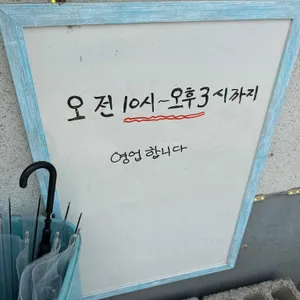 오전 10시~오후3시까지
영업합니다